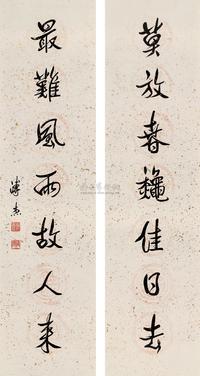 莫放春龝佳日去
最難風雨故人來
溥杰